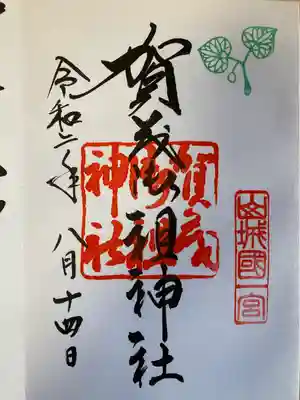 山城國一宮
賀茂御祖神社
賀茂御祖神社
令和二年八月十四日